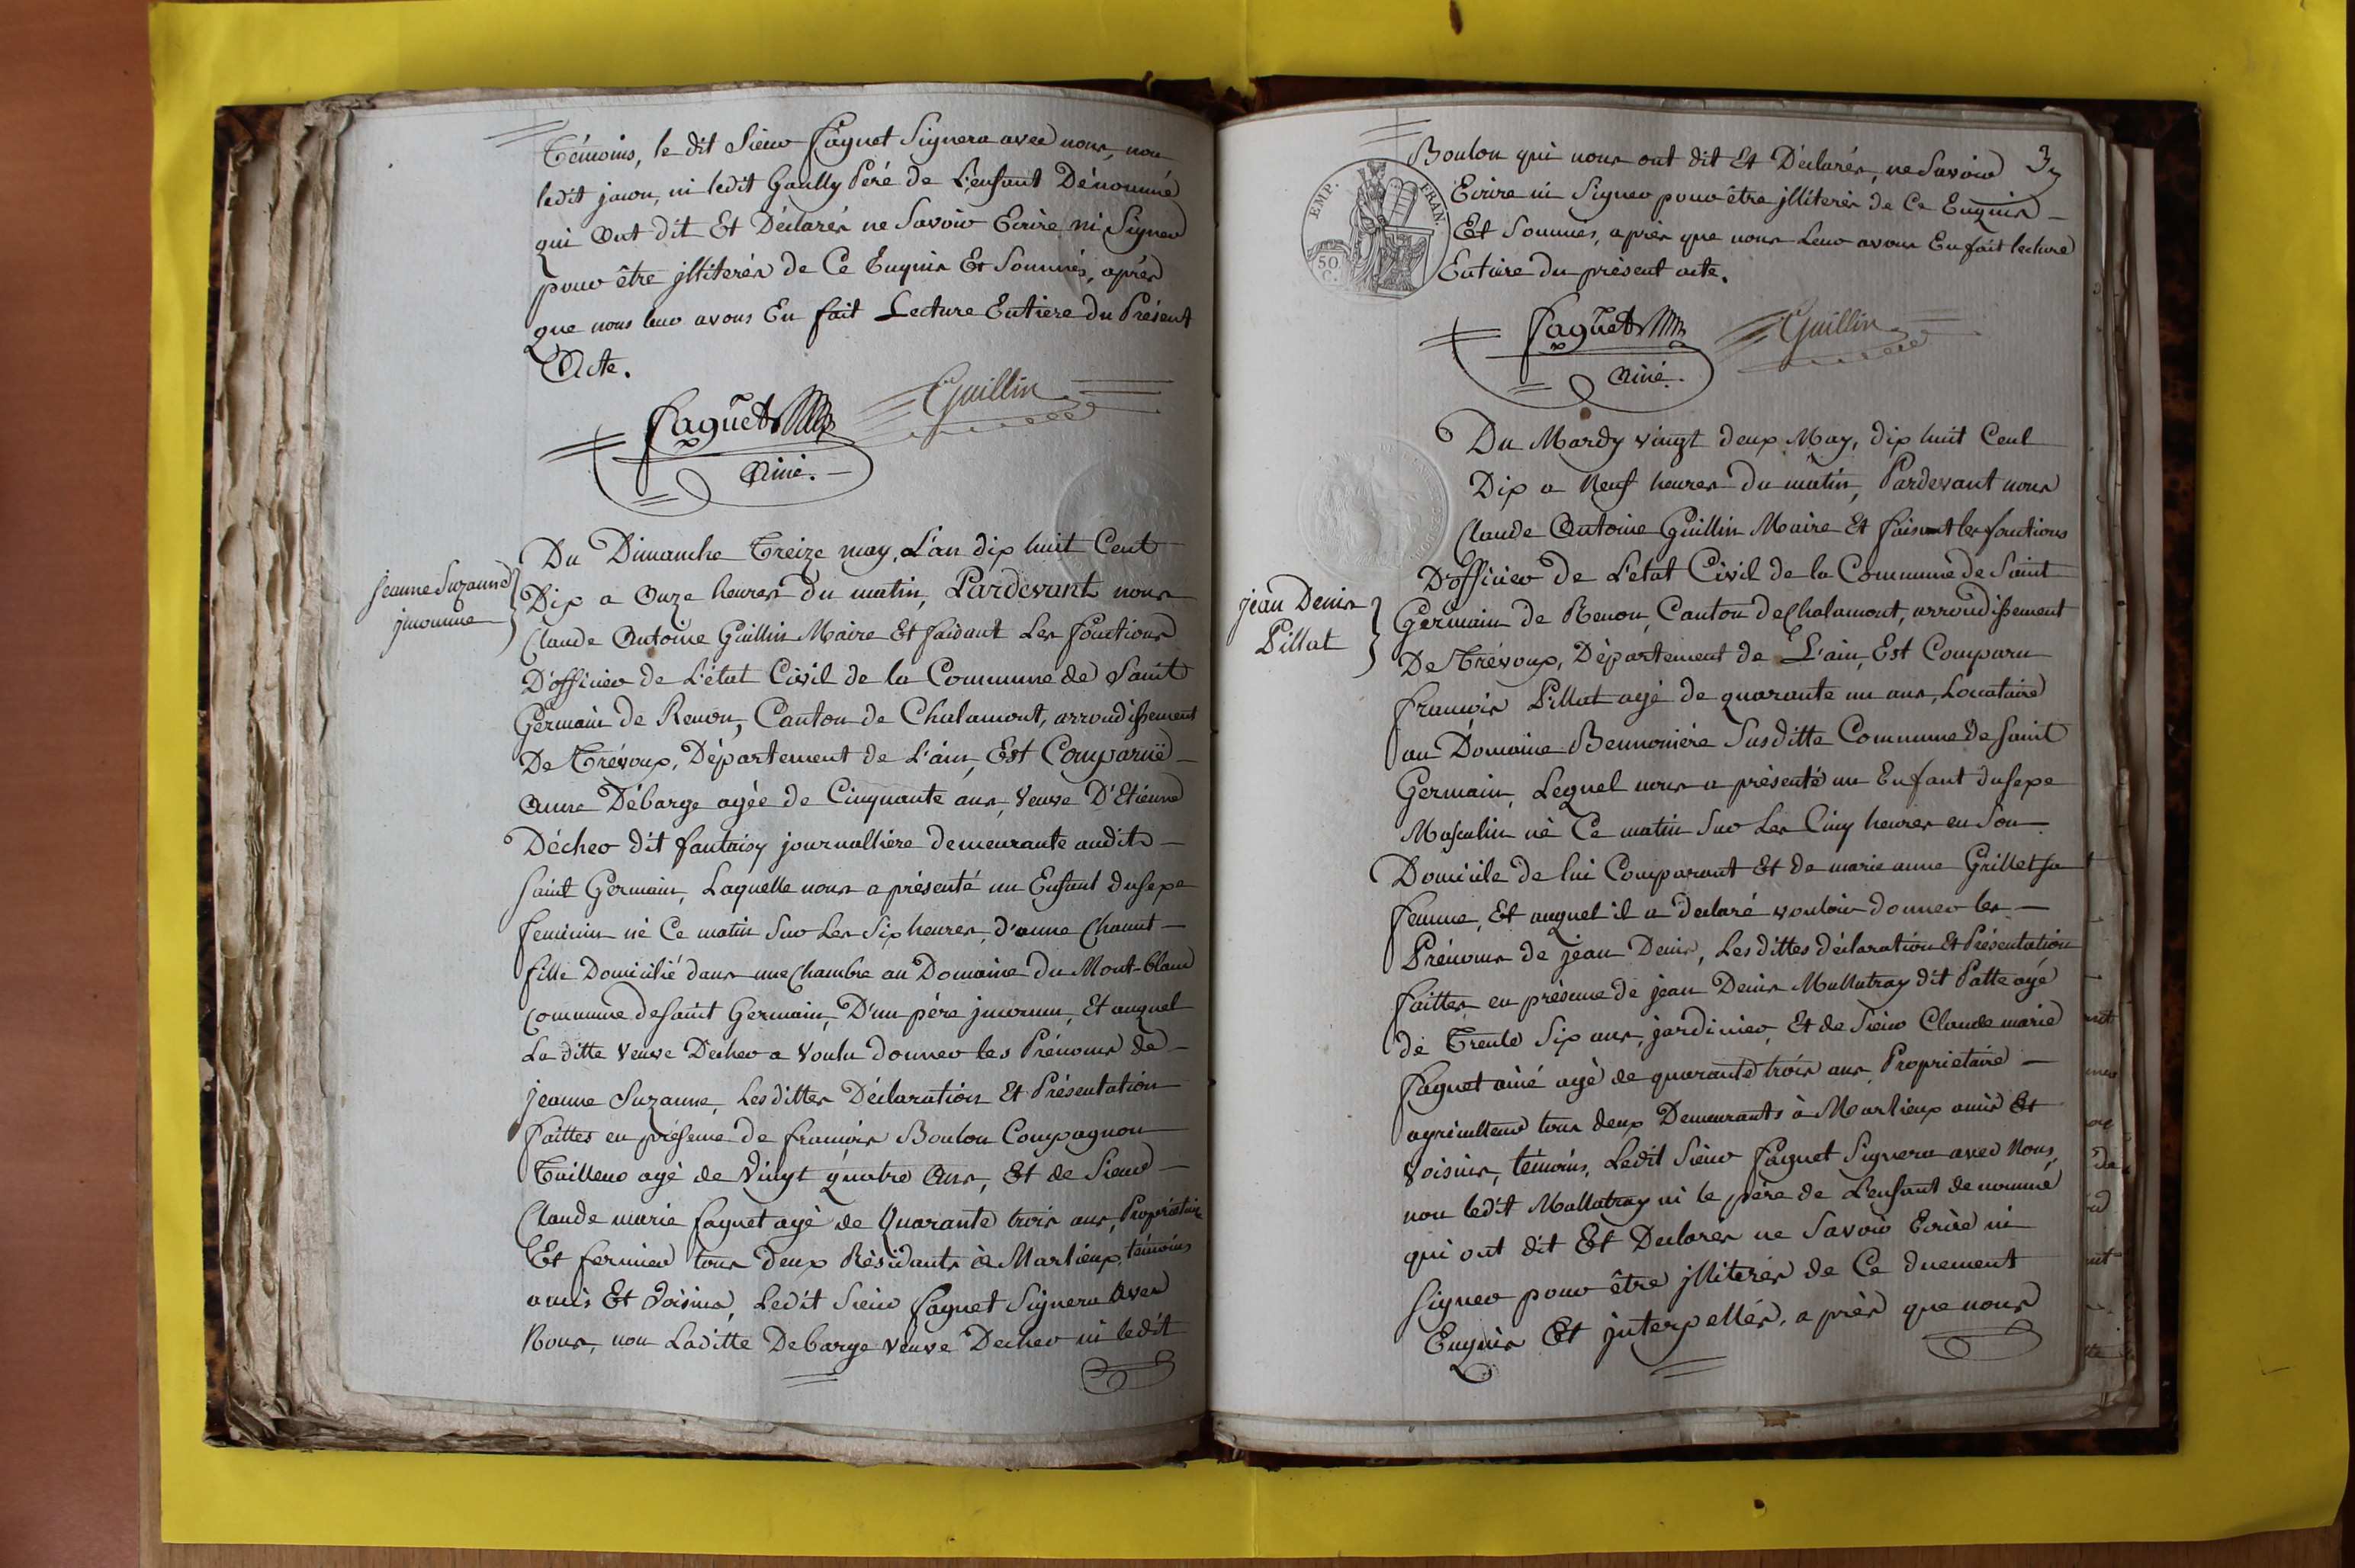 Témoins, le dit Sieur Faguet Signera avec nous, non
ledit jacon, ni ledit Gaully Péré de L'enfant Dénommé
qui Ont dit Et Déclarés ne Savoir Ecrire ni Signer
pour être jlliterés de Ce Enquis Et Sommés, après
que nous leur avons En fait Lecture Entiere du Présent
Acte.
Faguet Guillin
Ainé.
jeanne Suzanne
jnconnue
Du Dimanche Treize may, L'an dix huit Cent
Dix a Onze heures du matin, Pardevant nous
Claude Antoine Guillin Maire Et faisant Les fonctions
D'officier de L'état Civil de la Commune de Saint
Germain de Renon, Canton de Chalamont, arrondissement
De Trévoux, Département de L'ain, Est Comparuë
Anne Débarge agée de Cinquante ans, Veuve D'Etienne
Décher dit fantaisy journalliere demeurante audit
Saint Germain, Laquelle nous a présenté un Enfant du sexe
feminin né Ce matin Sur Les Six heures, d'anne Chanut
fille Domicilié dans une Chambre au Domaine du Mont-blanc
Commune de Saint Germain, D'un père jnconnu, Et auquel
La ditte Veuve Decher a Voulu donner les Prénoms de
jeanne Suzanne, Les dittes Déclaration Et Présentation
faittes en présence de francois Boulon Compagnon
Tailleur agé de Vingt quatre Ans, Et de Sieur
Claude marie faguet agé de Quarante trois ans, Propriétaire
Et fermier tous deux Résidants à Marlieux, témoins
amis Et Voisins, Ledit Sieur Faguet Signera Avec
Nous, non Laditte Debarge Veuve Decher ni ledit
3
EMP. FRAN.
50
C.
Boulon qui nous ont dit Et Déclarés, ne Savoir
Ecrire ni Signer pour être jlliterés de Ce Enquis
Et Sommés, après que nous Leur avons En fait lecture
Entiere du présent acte.
Faguet Guillin
Ainé.
jean Denis
Pillat
Du Mardy vingt deux May, dix huit Cent
Dix a Neuf heures du matin, Pardevant nous
Claude Antoine Guillin Maire Et faisant les fonctions
D'officier de L'etat Civil de la Commune de Saint
Germain de Renon, Canton de Chalamont, arrondissement
De Trévoux, Département de L'ain, Est Comparu
francois Pillat agé de quarante un ans, Locataire
au Domaine Bennoniere Susditte Commune de Saint
Germain, Lequel nous a présenté un Enfant du sexe
Masculin né Ce matin Sur Les Cinq heures en Son
Domicile de lui Comparant Et de marie anne Grillet sa
femme, Et auquel il a declaré vouloir donner les
Prénoms de jean Denis, Les dittes déclaration Et Présentation
faittes en présence de jean Denis Mallatray dit Patte agé
de Trente Six ans, jardinier, Et de Sieur Claude marie
Faguet ainé agé de quarante trois ans, Proprietaire
agriculteur tous deux Demeurants à Marlieux amis Et
Voisins, témoins, Ledit Sieur Faguet Signera avec Nous,
non ledit Mallatray ni le père de L'enfant denommé
qui ont dit Et Declarés ne Savoir Ecrire ni
Signer pour être jlliterés de Ce duement
Enquis Et jnterpellés, après que nous